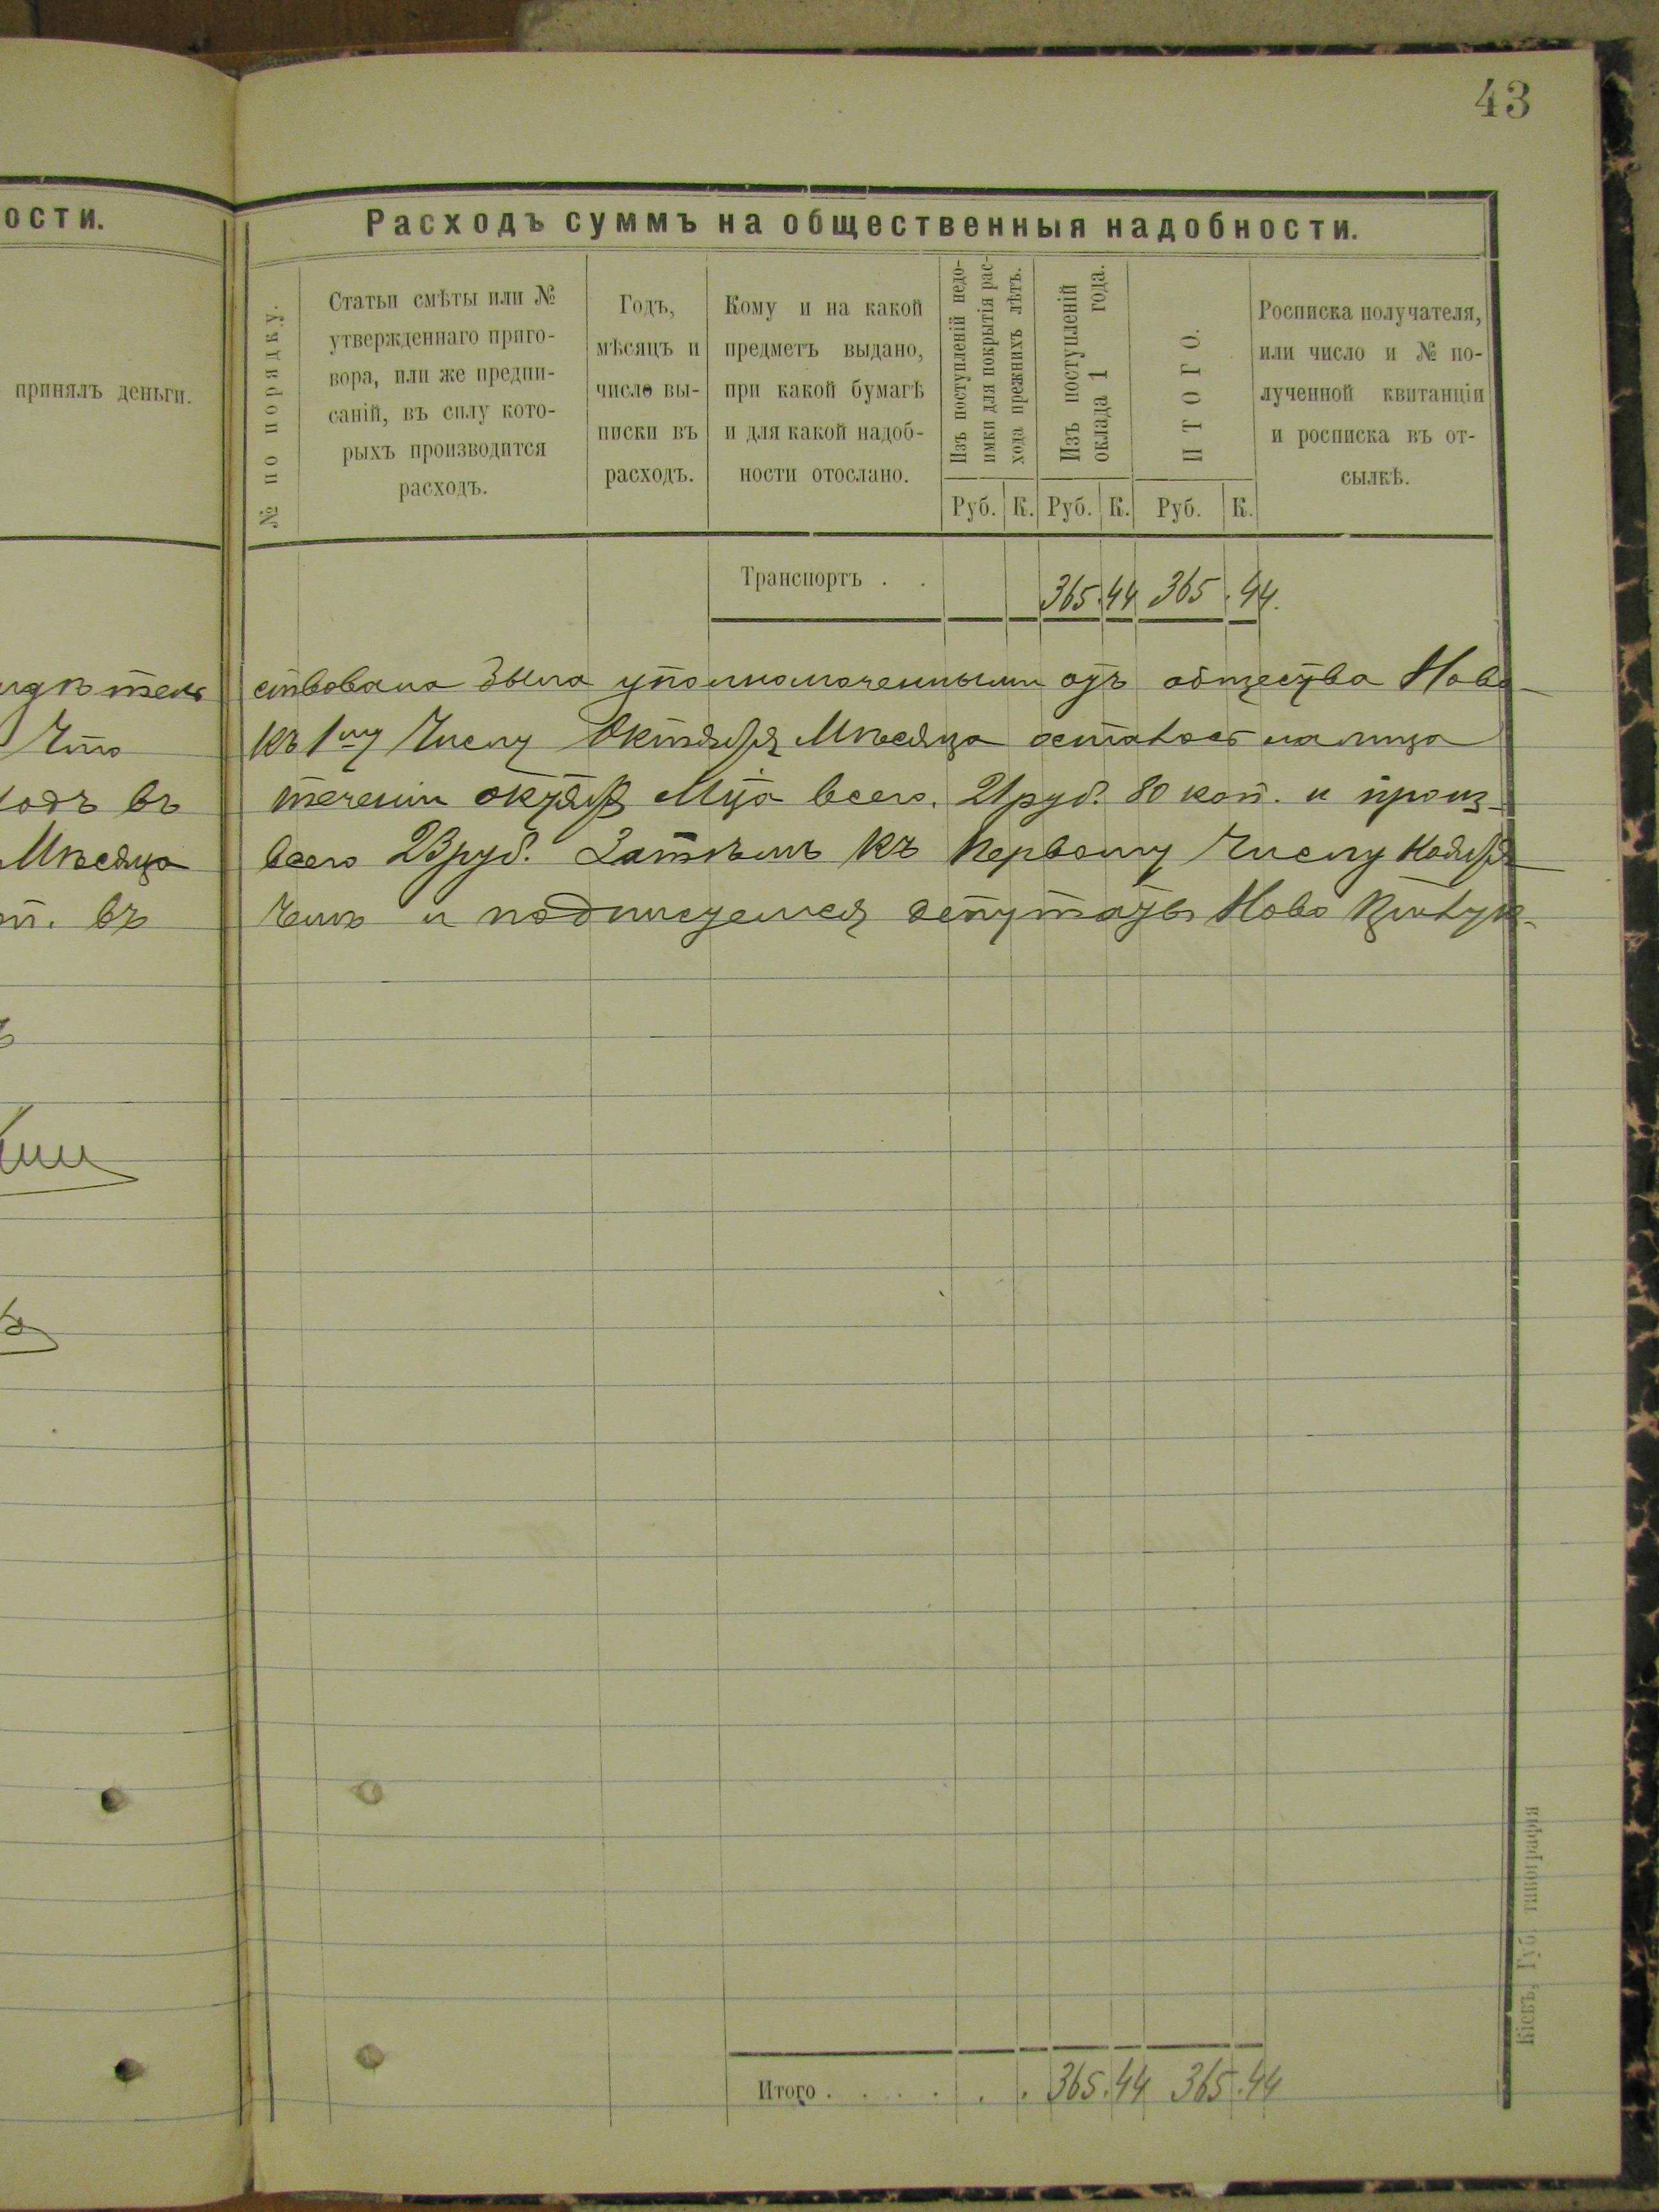 43
ости.
принялъ деньги.
Что
одъ въ
Мѣсяца
въ
Расходъ суммъ на общественныя надобности.
№ по порядку.
Статьи смѣты или №
утвержденнаго приго-
вора, или же предпи-
саній, въ силу кото-
рыхъ производится
расходъ.
Годъ,
мѣсяцъ и
число вы-
писки въ
расходъ.
Кому и на какой
предметъ выдано,
при какой бумагѣ
и для какой надоб-
ности отослано.
Изъ поступленій недо-
имки для покрытія рас-
хода прежнихъ лѣтъ.
Изъ поступленій
оклада 1 года.
ИТОГО.
Росписка получателя,
или число и № по-
лученной квитанціи
и росписка въ от-
сылкѣ.
Руб. К. Руб. К. Руб. К.
Транспортъ . . 365.44 365.44.
ствована была уполномоченными отъ общества Ново-
къ 1му Числу Октября Мѣсяца остатокъ налицо
течении октября Мца всего. 21 руб. 80 коп. и произ-
всего 23 руб. Затѣмъ къ Первому Числу Ноября
чемъ и подписуемся депутаты Ново
Итого . . . . . . 365.44 365.44
Кіевъ, Губ. типографія